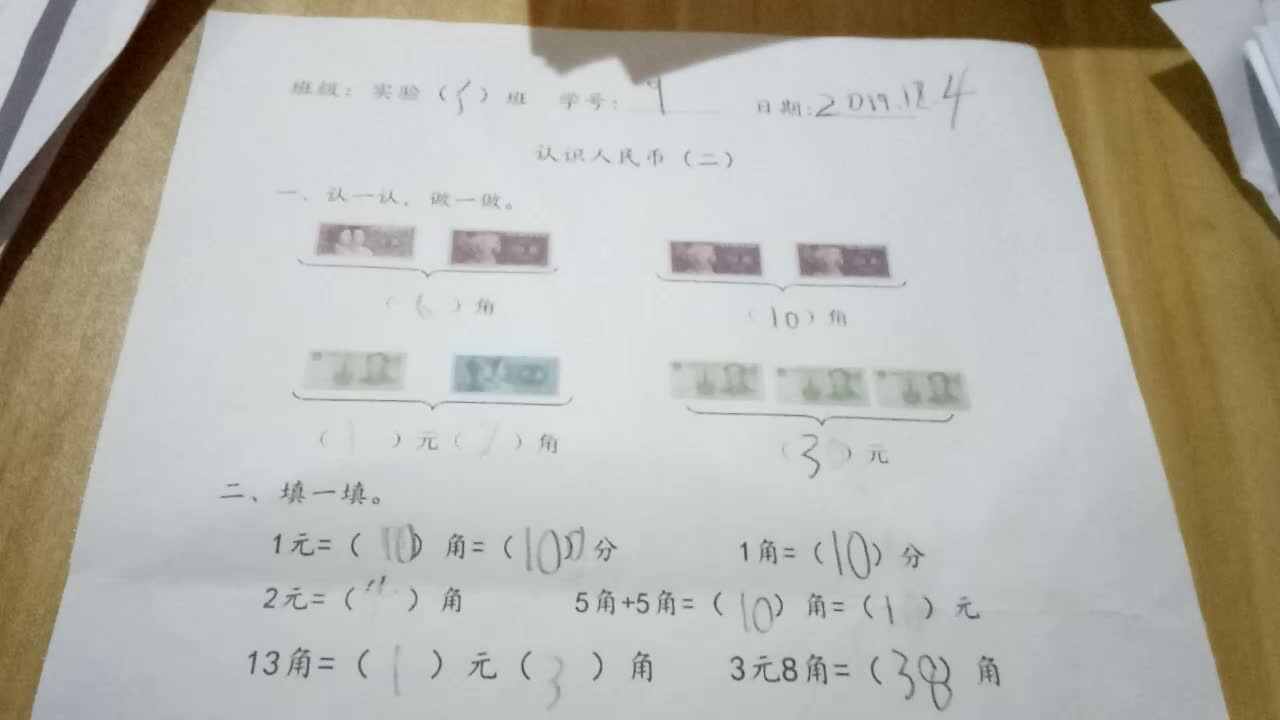 班级：实验（5）班 学号：9 日期：2019.12.4
认识人民币（二）
一、认一认，做一做。
（6）角 （10）角
（1）元（2）角 （3）元
二、填一填。
1元=（10）角=（100）分 1角=（10）分
2元=（ ）角 5角+5角=（10）角=（1）元
13角=（1）元（3）角 3元8角=（38）角